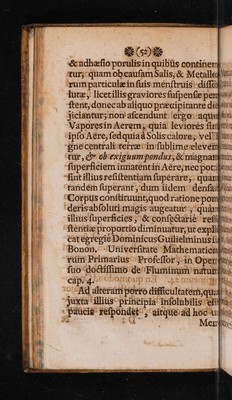 (52)
& adhæsio porulis in quibus continen
tur, quam ob causam Salis, & Metallo
rum particulæ in suis menstruis disso
lutæ, licet illis graviores suspensæ per
stent, donec ab aliquo præcipitante de
jiciantur; non ascendunt ergo aquei
Vapores in Aerem, quia leviores sint
ipso Aere, sed quia à Solis calore, vel
gne centrali terræ in sublime eleven
tur, & ob exiguum pondus, & magnam
superficiem innatent in Aere, nec pot
sint illius resistentiam superare, quam
tandem superant, dum iidem densa
Corpus constituunt, quod ratione pon
deris absoluti magis augeatur, quam
illius superficies, & consectariè resi
stentiæ proportio diminuatur, ut expli
cat egregiè Dominicus Guilielminus i
Bonon. Universitate Mathematicen
rum Primarius Professor, in Oper
suo doctissimo de Fluminum natur
cap. 4.
Ad alteram porro difficultatem, qua
juxta illius principia insolubilis el
paucis respondet, aitque ad hoc u
Mer